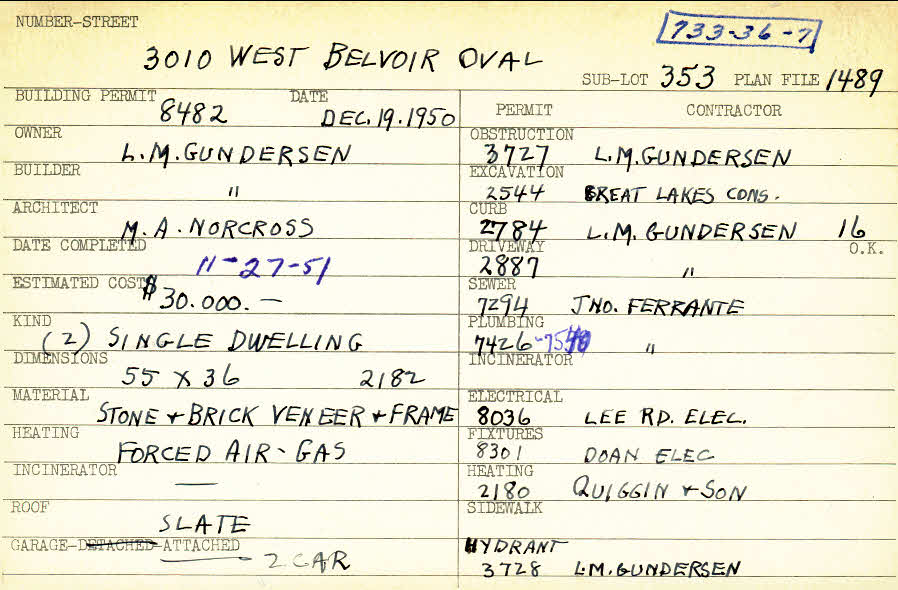 NUMBER-STREET
733-36-7
3010 WEST BELVOIR OVAL
SUB-LOT 353 PLAN FILE 1489
BUILDING PERMIT 8482 DATE DEC. 19. 1950
PERMIT CONTRACTOR
OWNER L.M. GUNDERSEN
OBSTRUCTION 3727 L.M. GUNDERSEN
BUILDER "
EXCAVATION 2544 GREAT LAKES CONS.
ARCHITECT M.A. NORCROSS
CURB 2784 L.M. GUNDERSEN 16
DATE COMPLETED 11-27-51
DRIVEWAY 2887 " O.K.
ESTIMATED COST $30.000.—
SEWER 7294 JNO. FERRANTE
KIND (2) SINGLE DWELLING
PLUMBING 7426- "
DIMENSIONS 55 X 36 2182
INCINERATOR
MATERIAL STONE + BRICK VENEER + FRAME
ELECTRICAL 8036 LEE RD. ELEC.
HEATING FORCED AIR - GAS
FIXTURES 8301 DOAN ELEC
INCINERATOR —
HEATING 2180 QUIGGIN + SON
ROOF SLATE
SIDEWALK
GARAGE-DETACHED-ATTACHED 2 CAR
HYDRANT 3728 L.M. GUNDERSEN